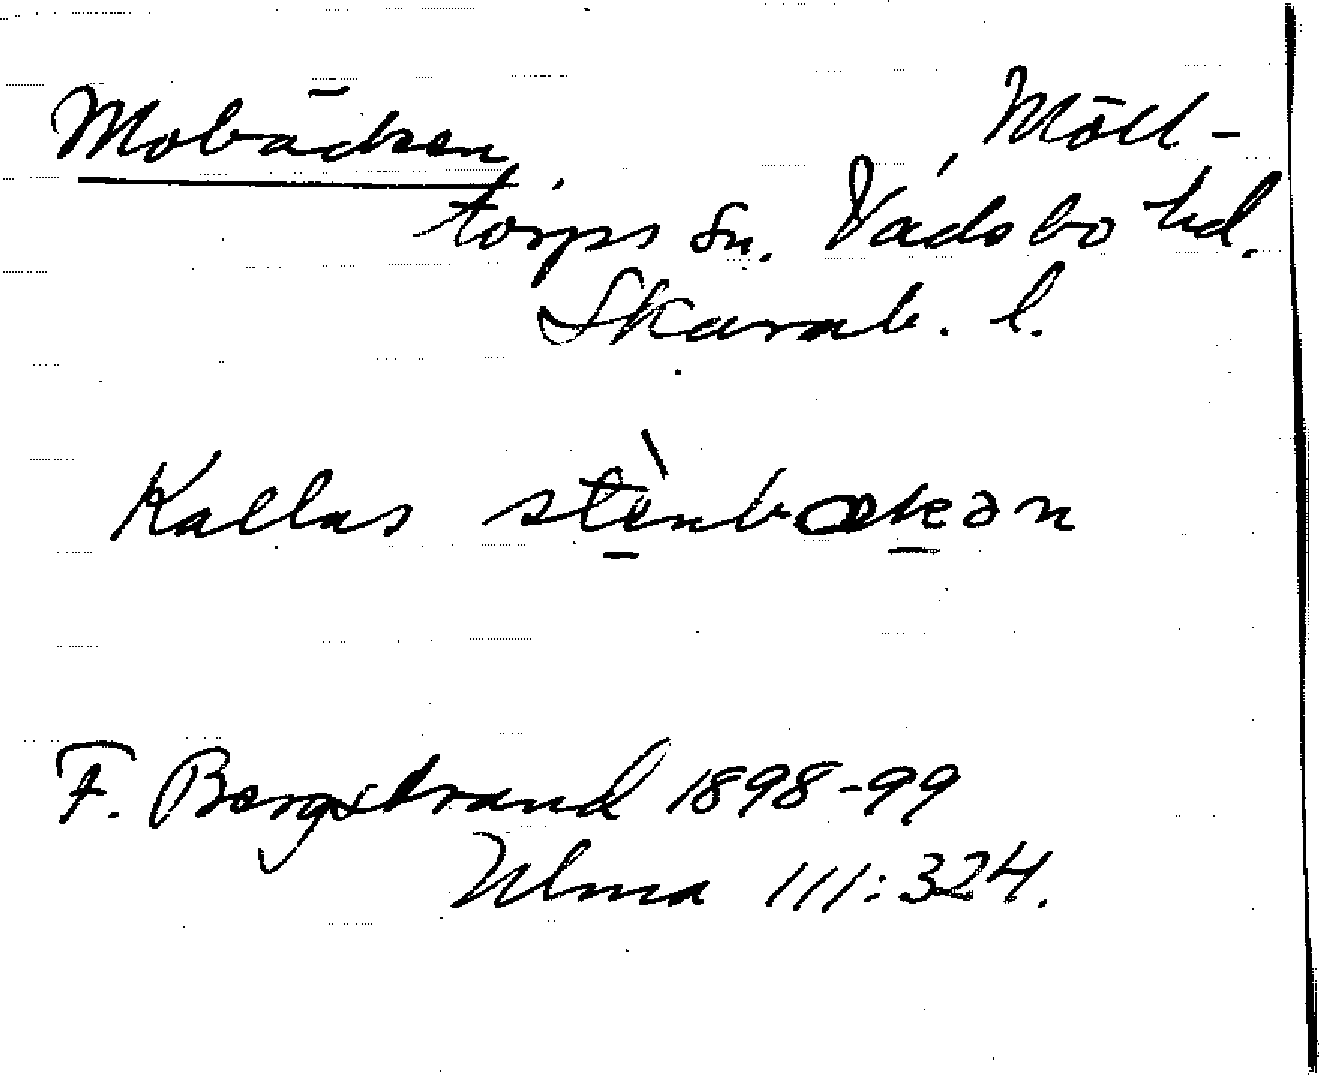 Mobäcken, Möll-
torps sn. Vadsbo hd.
Skarab. l.
Kallas stènbækən
F. Bergstrand 1898-99
Ulma 111:324.